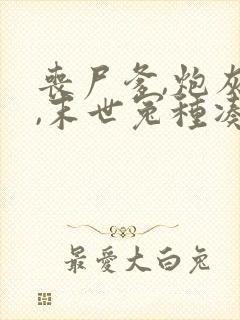 丧尸爹,炮灰
,末世兔种凑
最愛大白兔